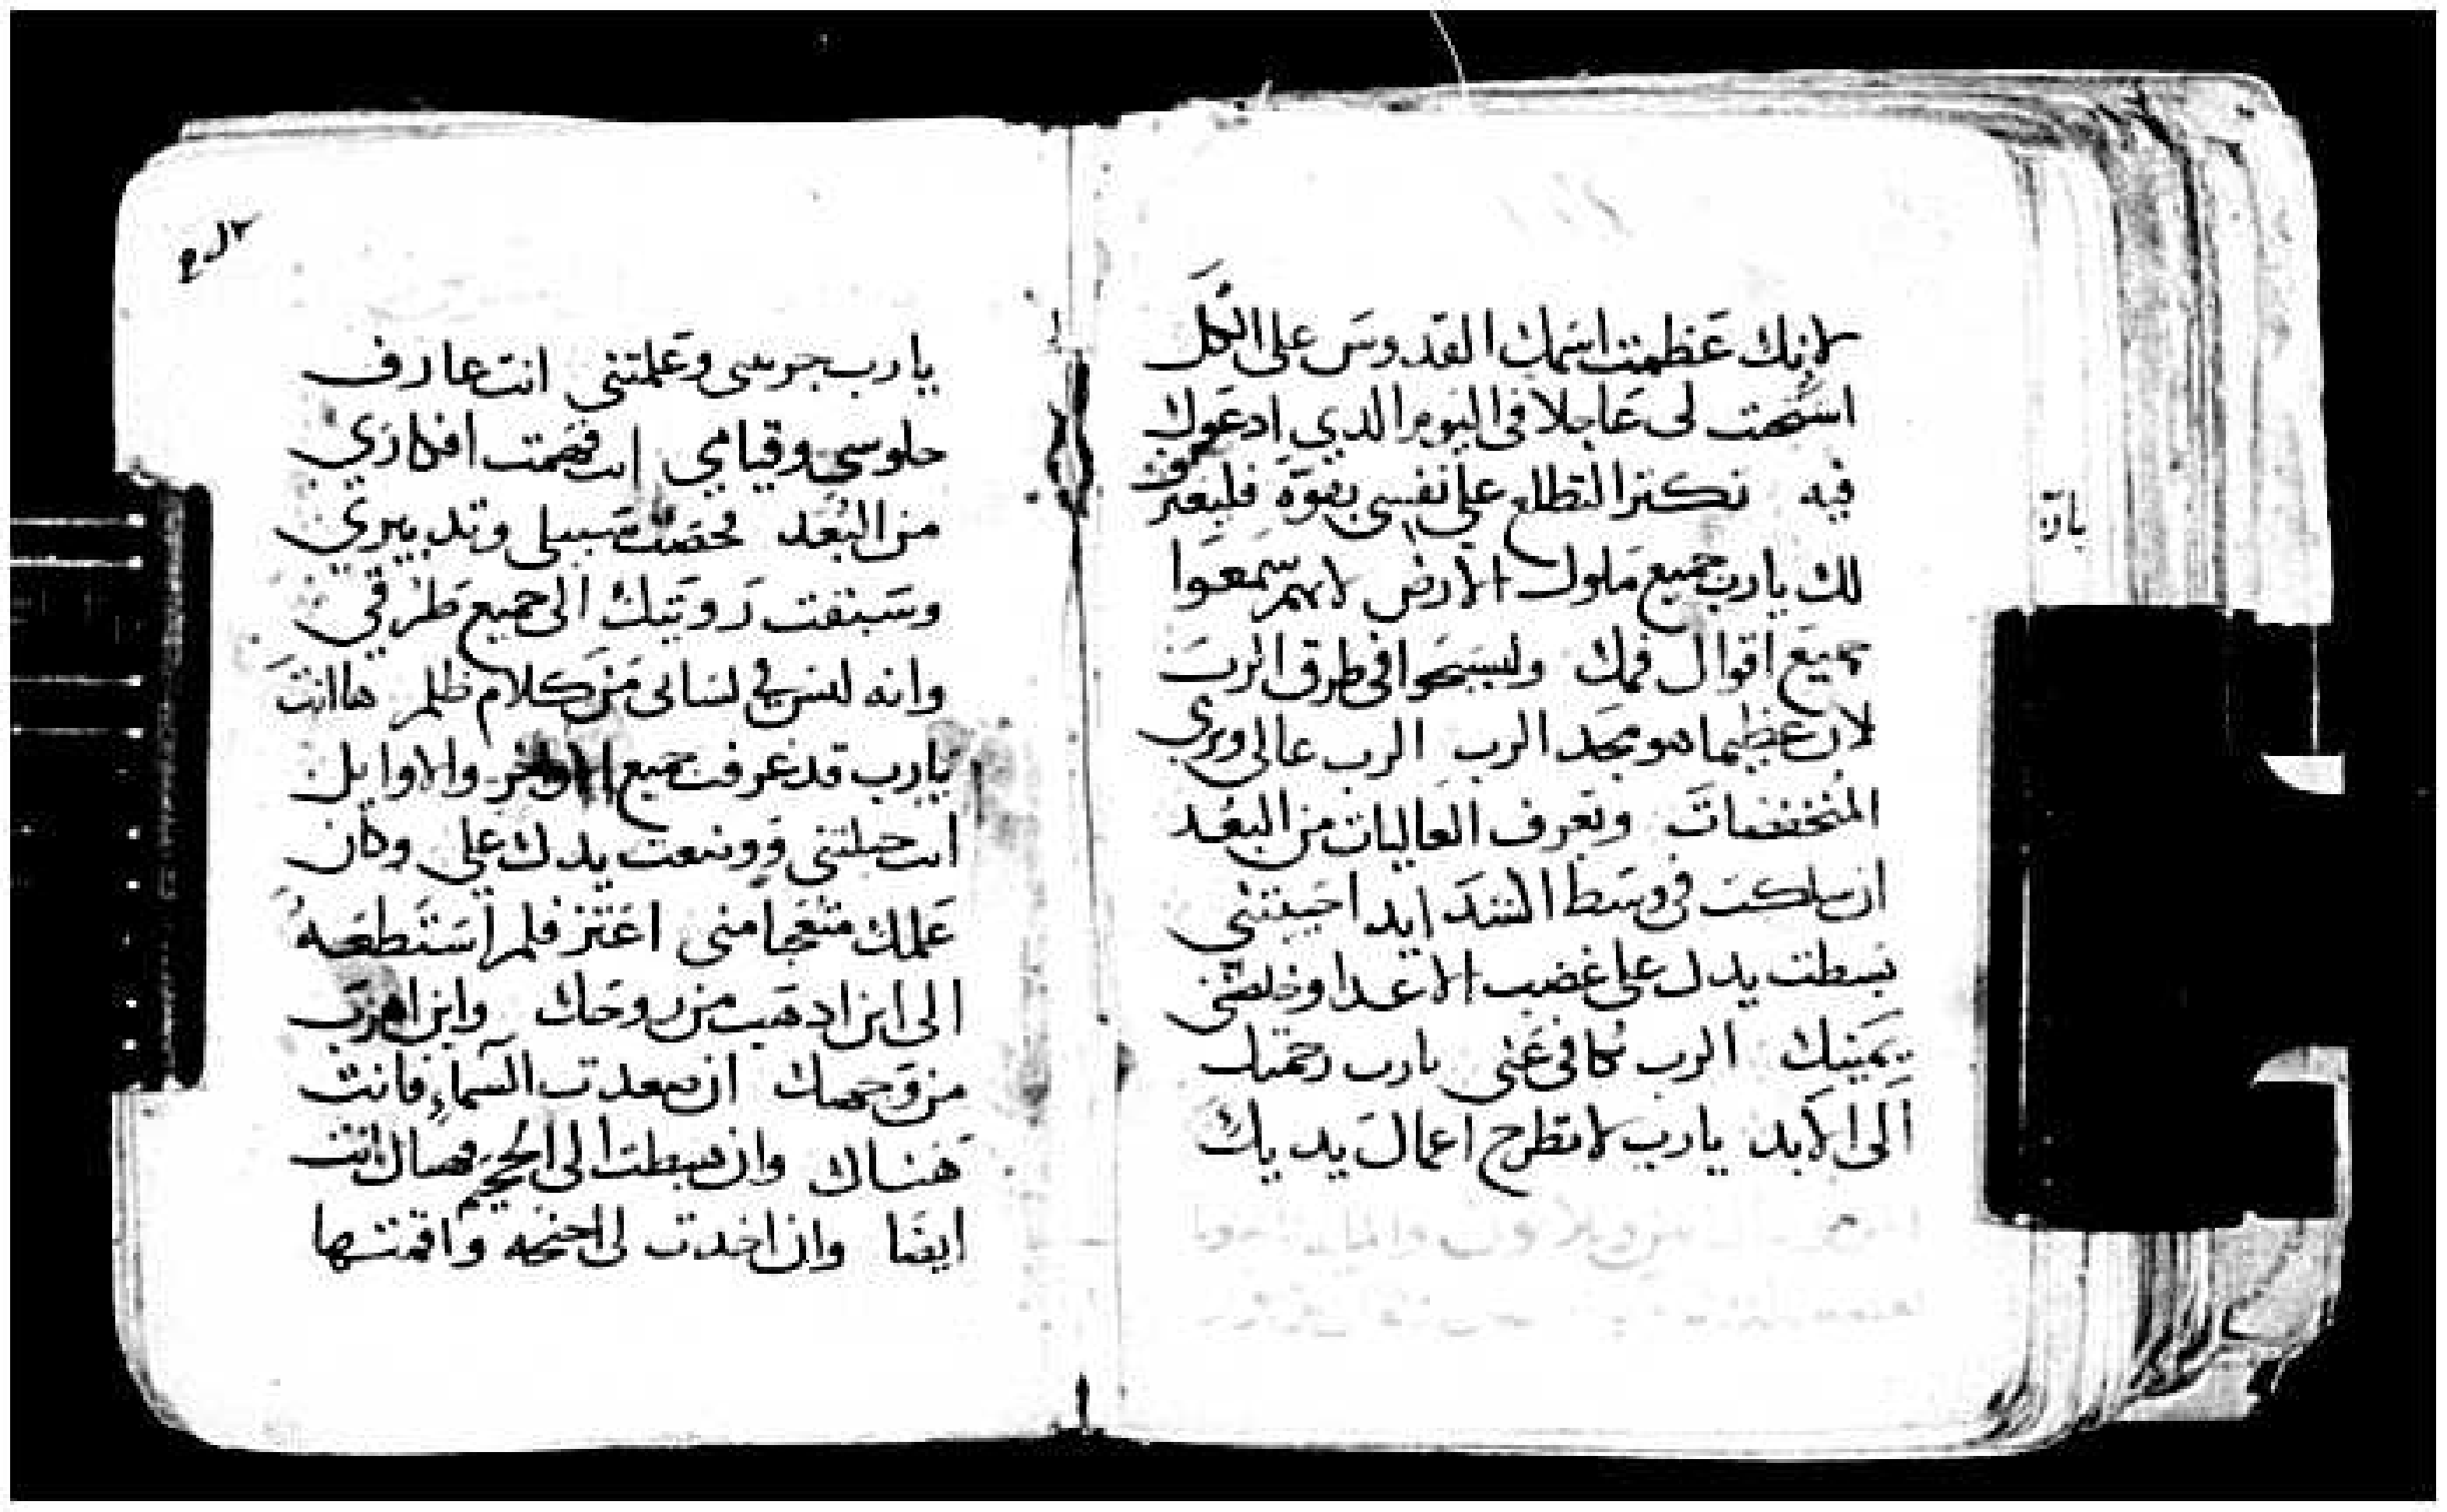 لانك عَظمت اسَمك القدوسَ على الكَل
استجت لى عَاجلا فى اليَوم الدي ادعَوك
فيه تكتر التطلع على نفسى بقوّة فليعترف
لك يارب جميع مَلوك الارض لانهم سَمعَوا
جميعَ اقوال فمَك وليسَبَحوا فى طرق الربَ
لان عظيما هو مجَد الرب الرب عالى ويري
المنُخفضَاتَ ويعَرف العاليات من البعُد
ان سلكت فى وسَط الشدَ ايد احَييتني
بسَطت يدك على غضب الاعدا وخلصَتنى
يمَينِك الرب يكافى عَنى يارب رحمَتك
الَى الابَد يارب لا تطرح اعمالَ يديكَ
يارب جربنى وعَلمتني انت عارف
جلوسى وقيامي انت فهَمت افكاري
من البُعَد فحصَت سَبيلى وتدبيري
وسَبَقت رَويَتك الى جميع طَرقي
وانه ليس في لسَانى مَن كلام ظلم ها انتَ
يارب قد عَرفت جميع الاواخر والاوايل
انت جبلتني وَوضعت يدك على وكان
عَلمك متعَجبا منى اعَتز فلم اسَتَطعَهُ
الى اين ادهَب من روحَك واين اهرَب
من وَجهك ان صعدت السَماءِ فانت
هَناك وان هبطت الى الجحَيم فهناك انت
ايضَا وان اخدت لى اجنحه وَاقمتها